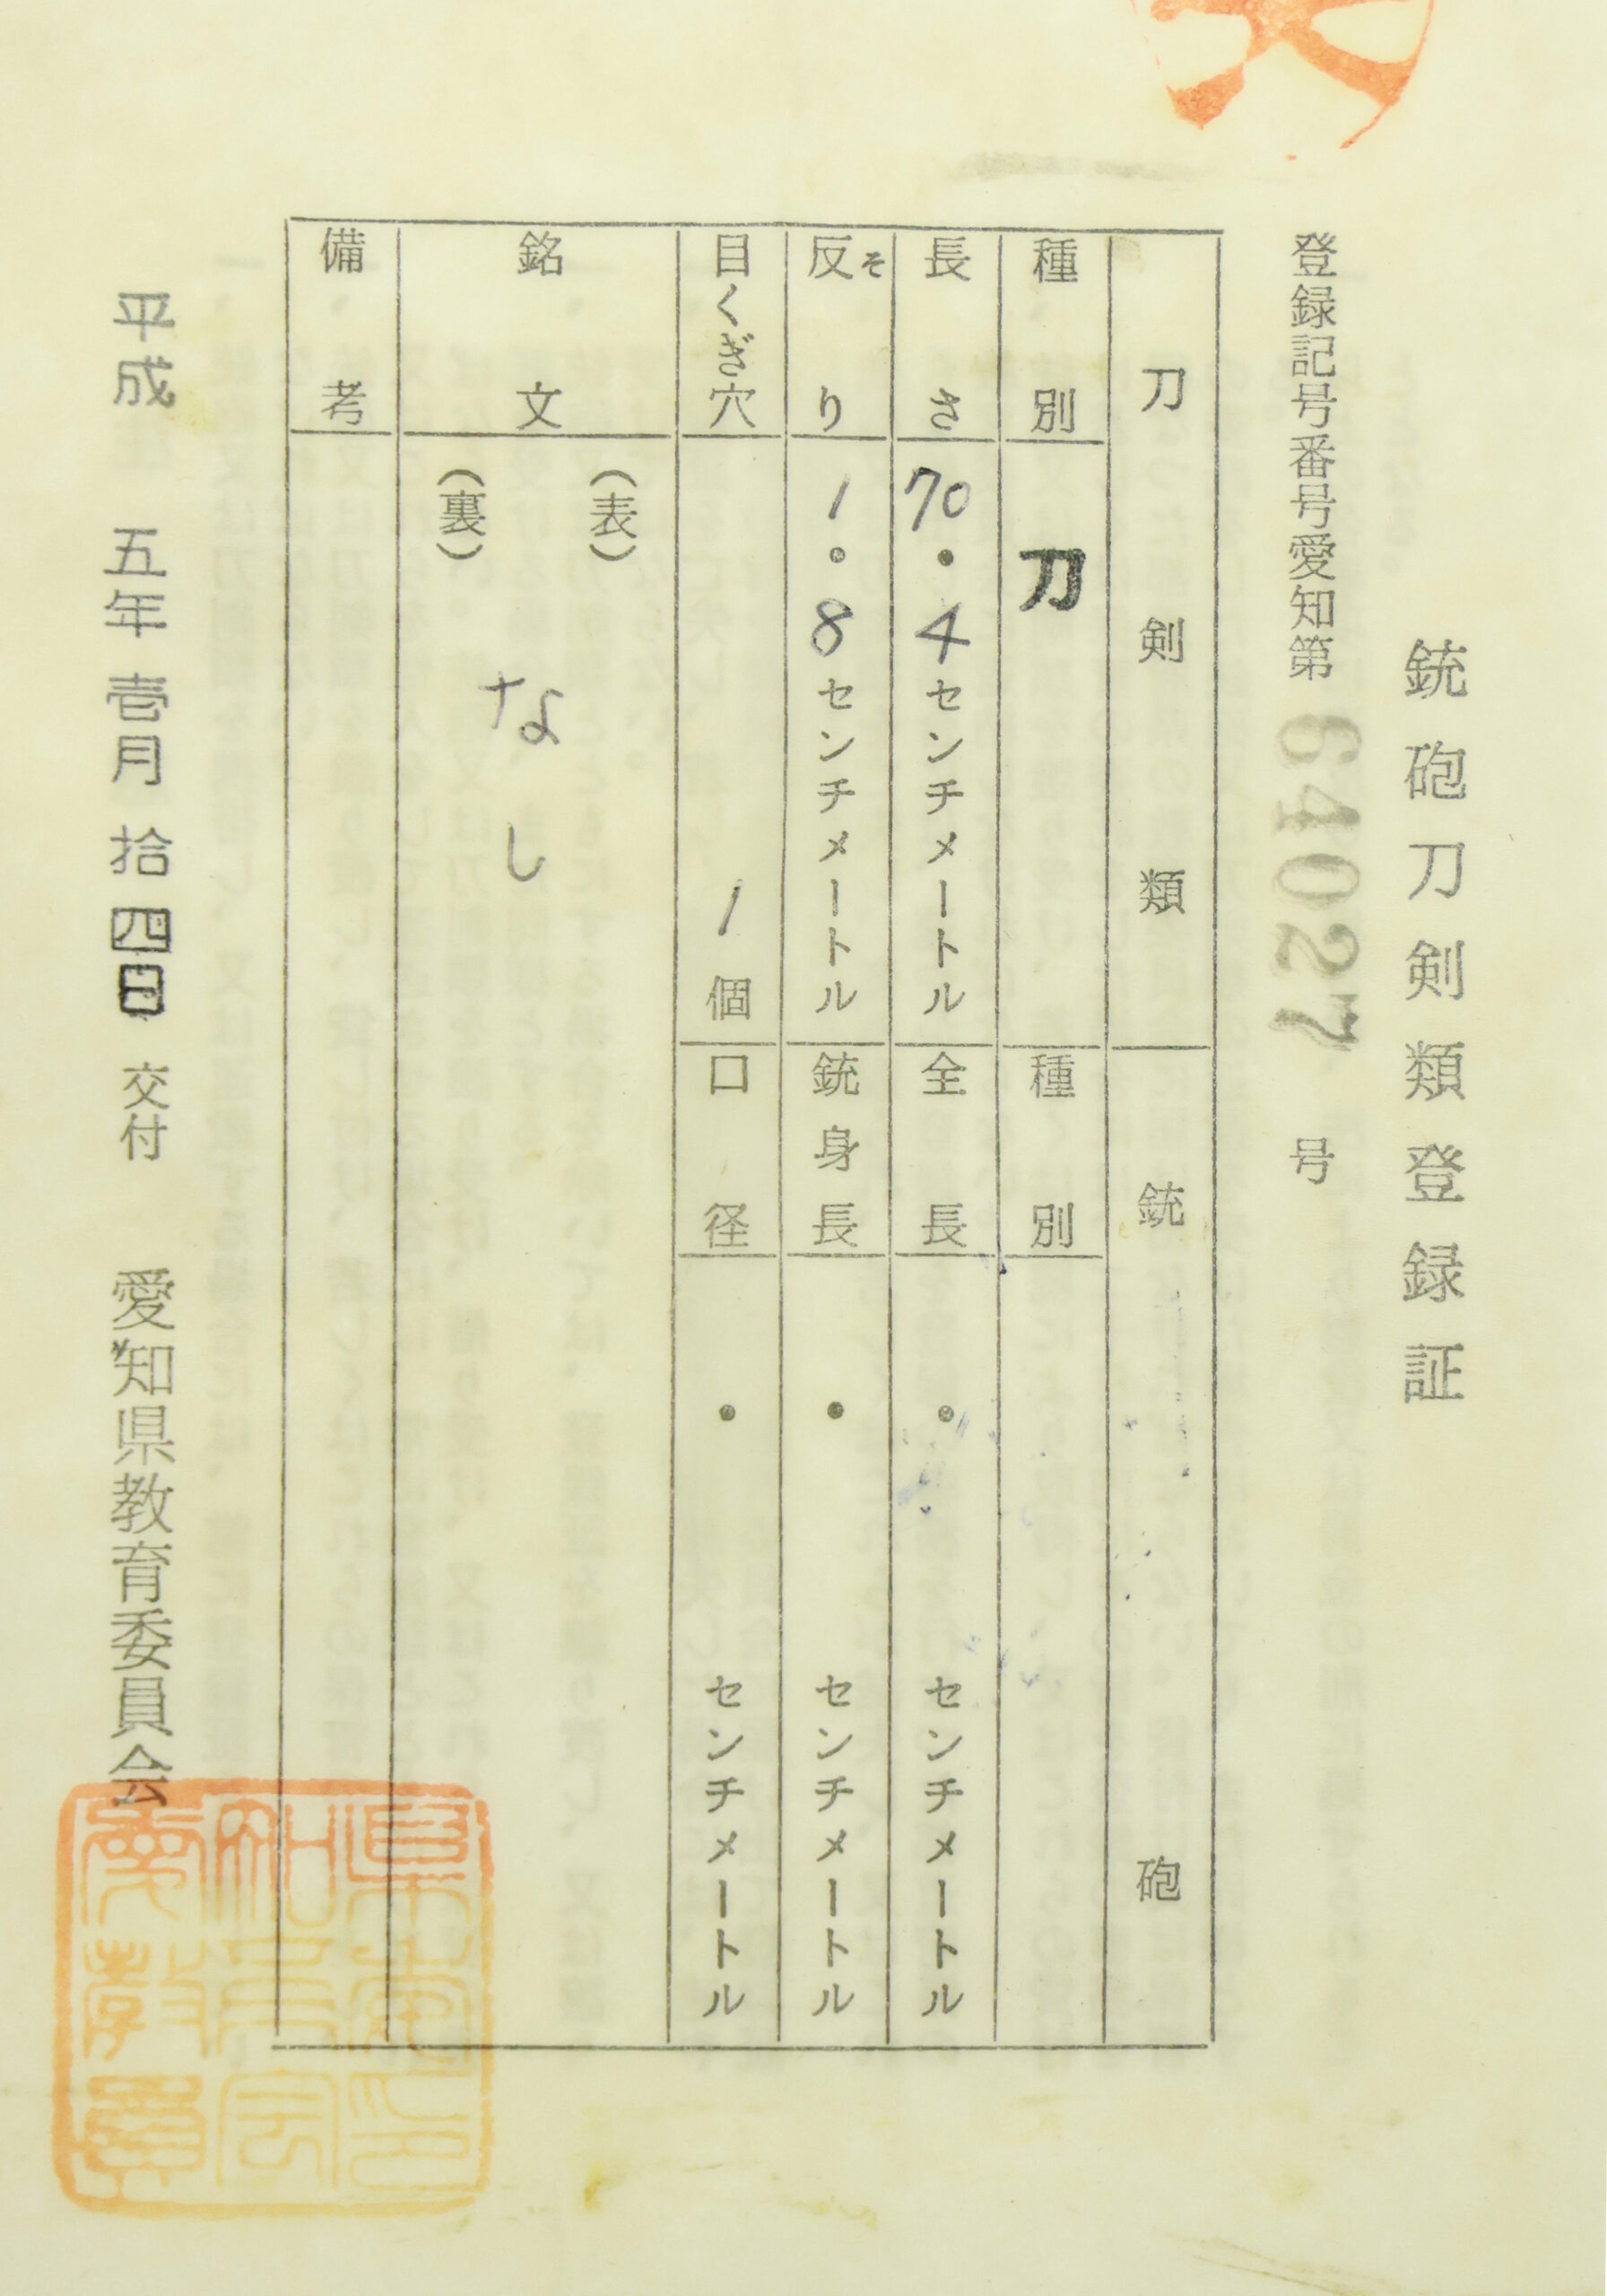 銃砲刀剣類登録証
登録記号番号愛知第 64027 号
刀剣類
銃砲
種別
刀
種別
長さ
70.4センチメートル
全長
・センチメートル
反り
そ
1.8センチメートル
銃身長
・センチメートル
目くぎ穴
1個
口径
・センチメートル
銘文
(表)
なし
(裏)
備考
平成 五年 壱月 拾四日 交付 愛知県教育委員会